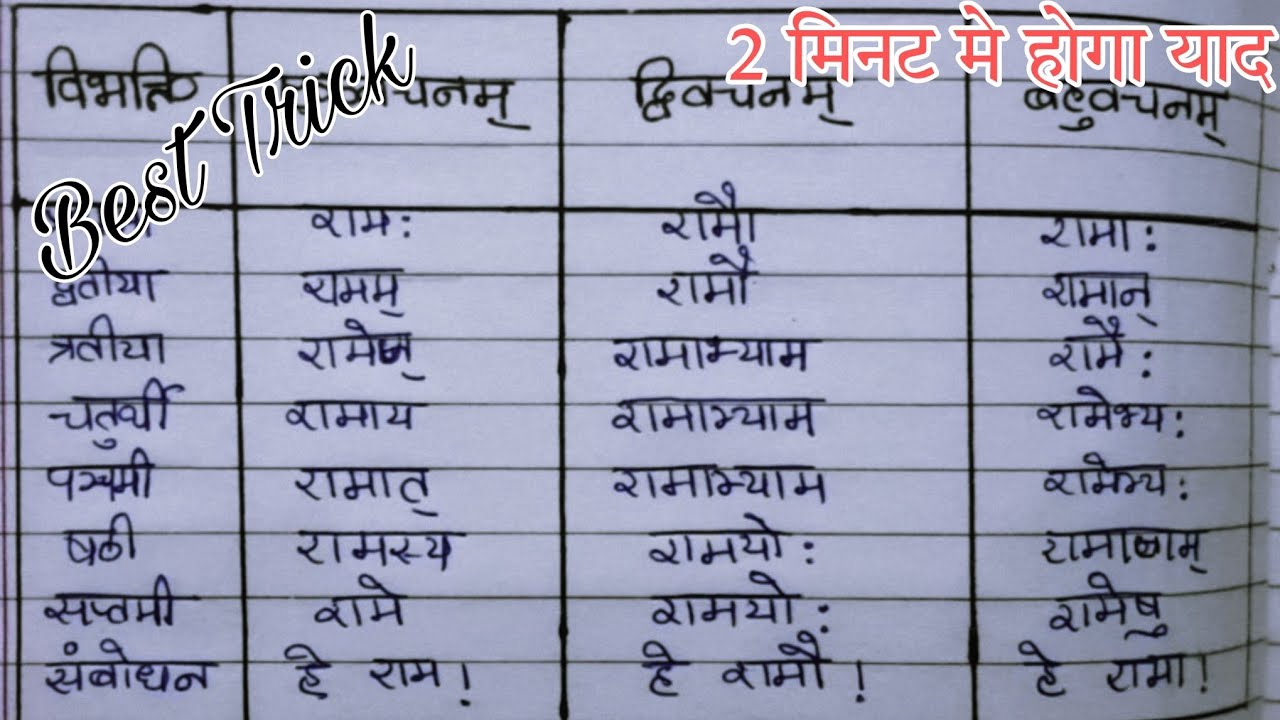 2 मिनट मे होगा याद
Best Trick
विभक्ति वचनम् द्विवचनम् बहुवचनम्
रामः रामौ रामाः
द्वतीया रामम् रामौ रामान्
त्रतीया रामाभ्याम रामैः
चतुर्थी रामाय रामाभ्याम रामेभ्यः
पञ्चमी रामात् रामाभ्याम रामेभ्यः
षष्ठी रामस्य रामयोः रामाणाम्
सप्तमी रामे रामयोः रामेषु
संबोधन हे राम! हे रामौ! हे रामा!